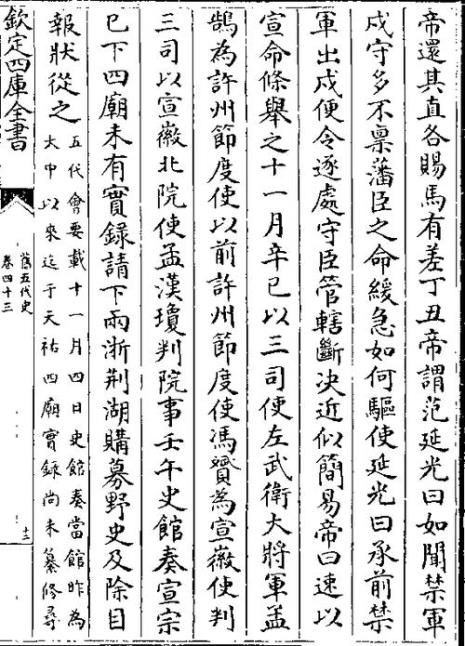 帝還其直各賜馬有差丁丑帝謂范延光曰如聞禁軍
戍守多不稟藩臣之命緩急如何驅使延光曰承前禁
軍出戍便令逐處守臣管轄斷決近似簡易帝曰速以
宣命條舉之十一月辛巳以三司使左武衛大將軍孟
鵠為許州節度使以前許州節度使馮贇為宣徽使判
三司以宣徽北院使孟漢瓊判院事壬午史館奏宣宗
已下四廟未有實録請下兩浙荆湖購募野史及除目
報狀從之
五代會要載十一月四日史館奏當館昨為
大中以來迄于天祐四廟實録尚未纂修尋
欽定四庫全書
舊五代史
卷四十三
十三